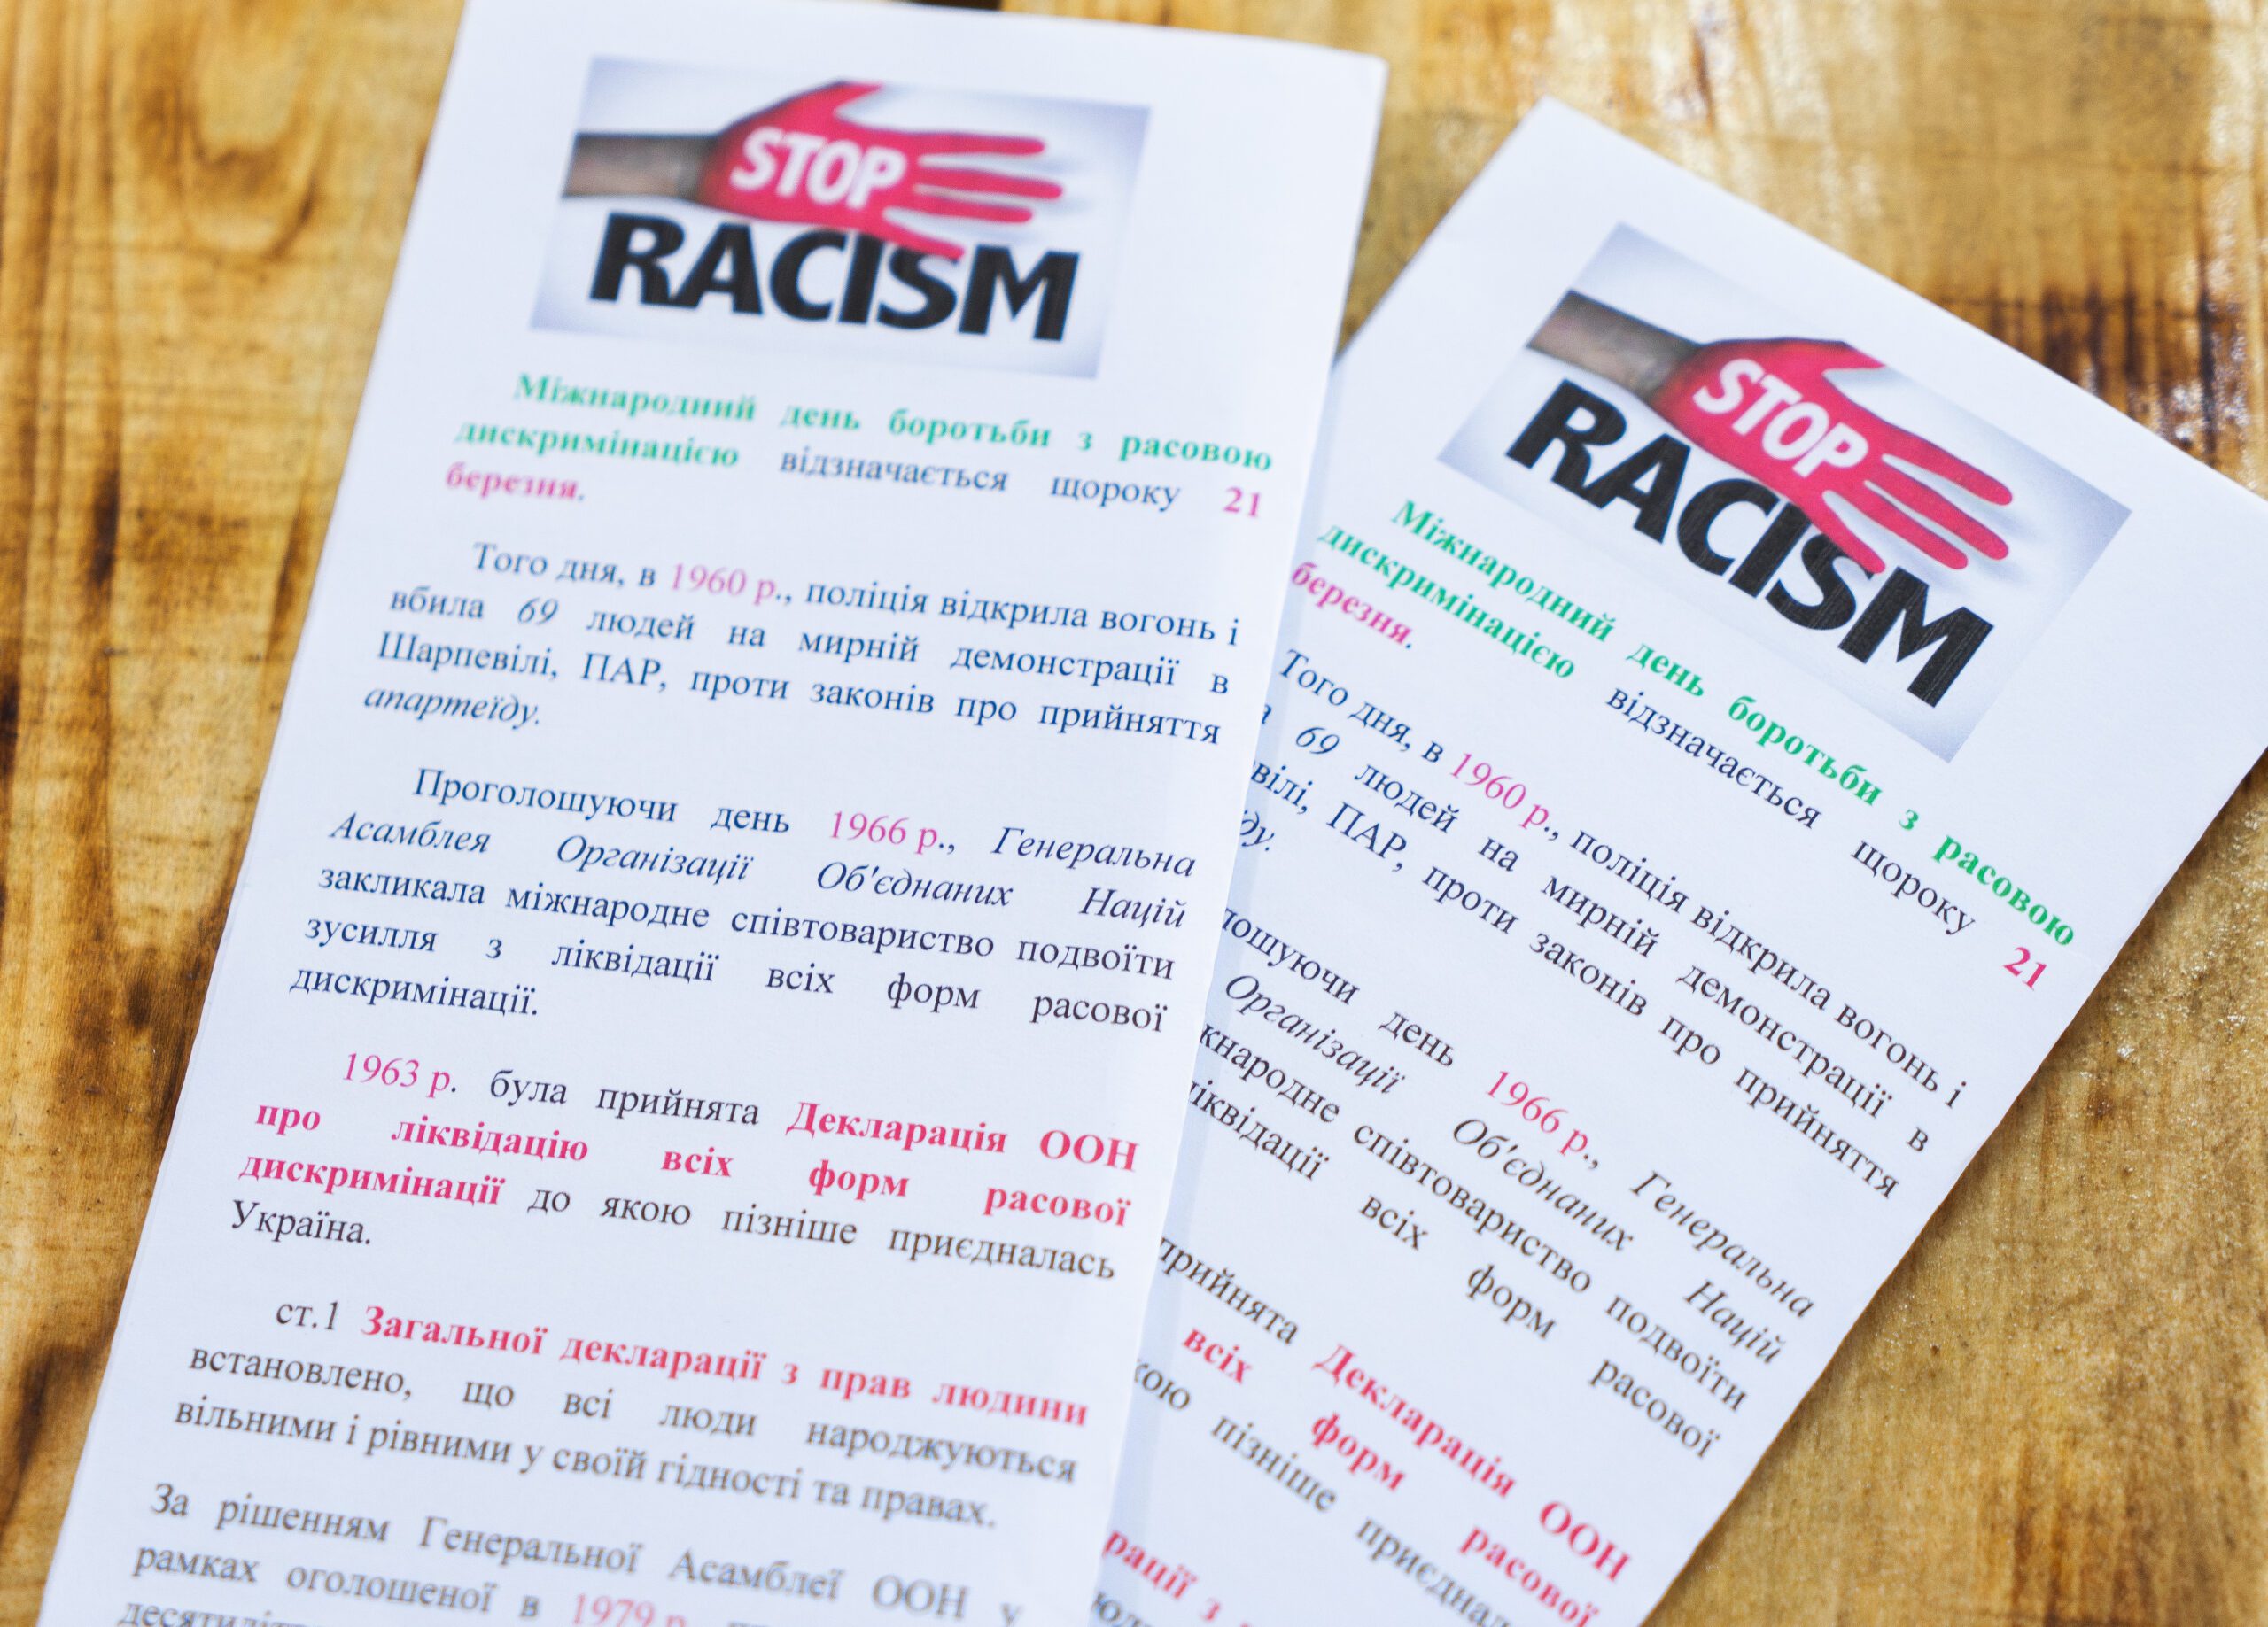 STOP
RACISM
Міжнародний день боротьби з расовою
дискримінацією відзначається щороку 21
березня.
Того дня, в 1960 р., поліція відкрила вогонь і
вбила 69 людей на мирній демонстрації в
Шарпевілі, ПАР, проти законів про прийняття
апартеїду.
Проголошуючи день 1966 р., Генеральна
Асамблея Організації Об'єднаних Націй
закликала міжнародне співтовариство подвоїти
зусилля з ліквідації всіх форм расової
дискримінації.
1963 р. була прийнята Декларація ООН
про ліквідацію всіх форм расової
дискримінації до якою пізніше приєдналась
Україна.
ст.1 Загальної декларації з прав людини
встановлено, що всі люди народжуються
вільними і рівними у своїй гідності та правах.
За рішенням Генеральної Асамблеї ООН у
рамках оголошеної в 1979 р.
STOP
RACISM
Міжнародний день боротьби з расовою
дискримінацією відзначається щороку 21
березня.
Того дня, в 1960 р., поліція відкрила вогонь і
69 людей на мирній демонстрації в
вілі, ПАР, проти законів про прийняття
ду.
лошуючи день 1966 р., Генеральна
Організації Об'єднаних Націй
жнародне співтовариство подвоїти
ліквідації всіх форм расової
прийнята Декларація ООН
всіх форм расової
кою пізніше приєднал
рації з